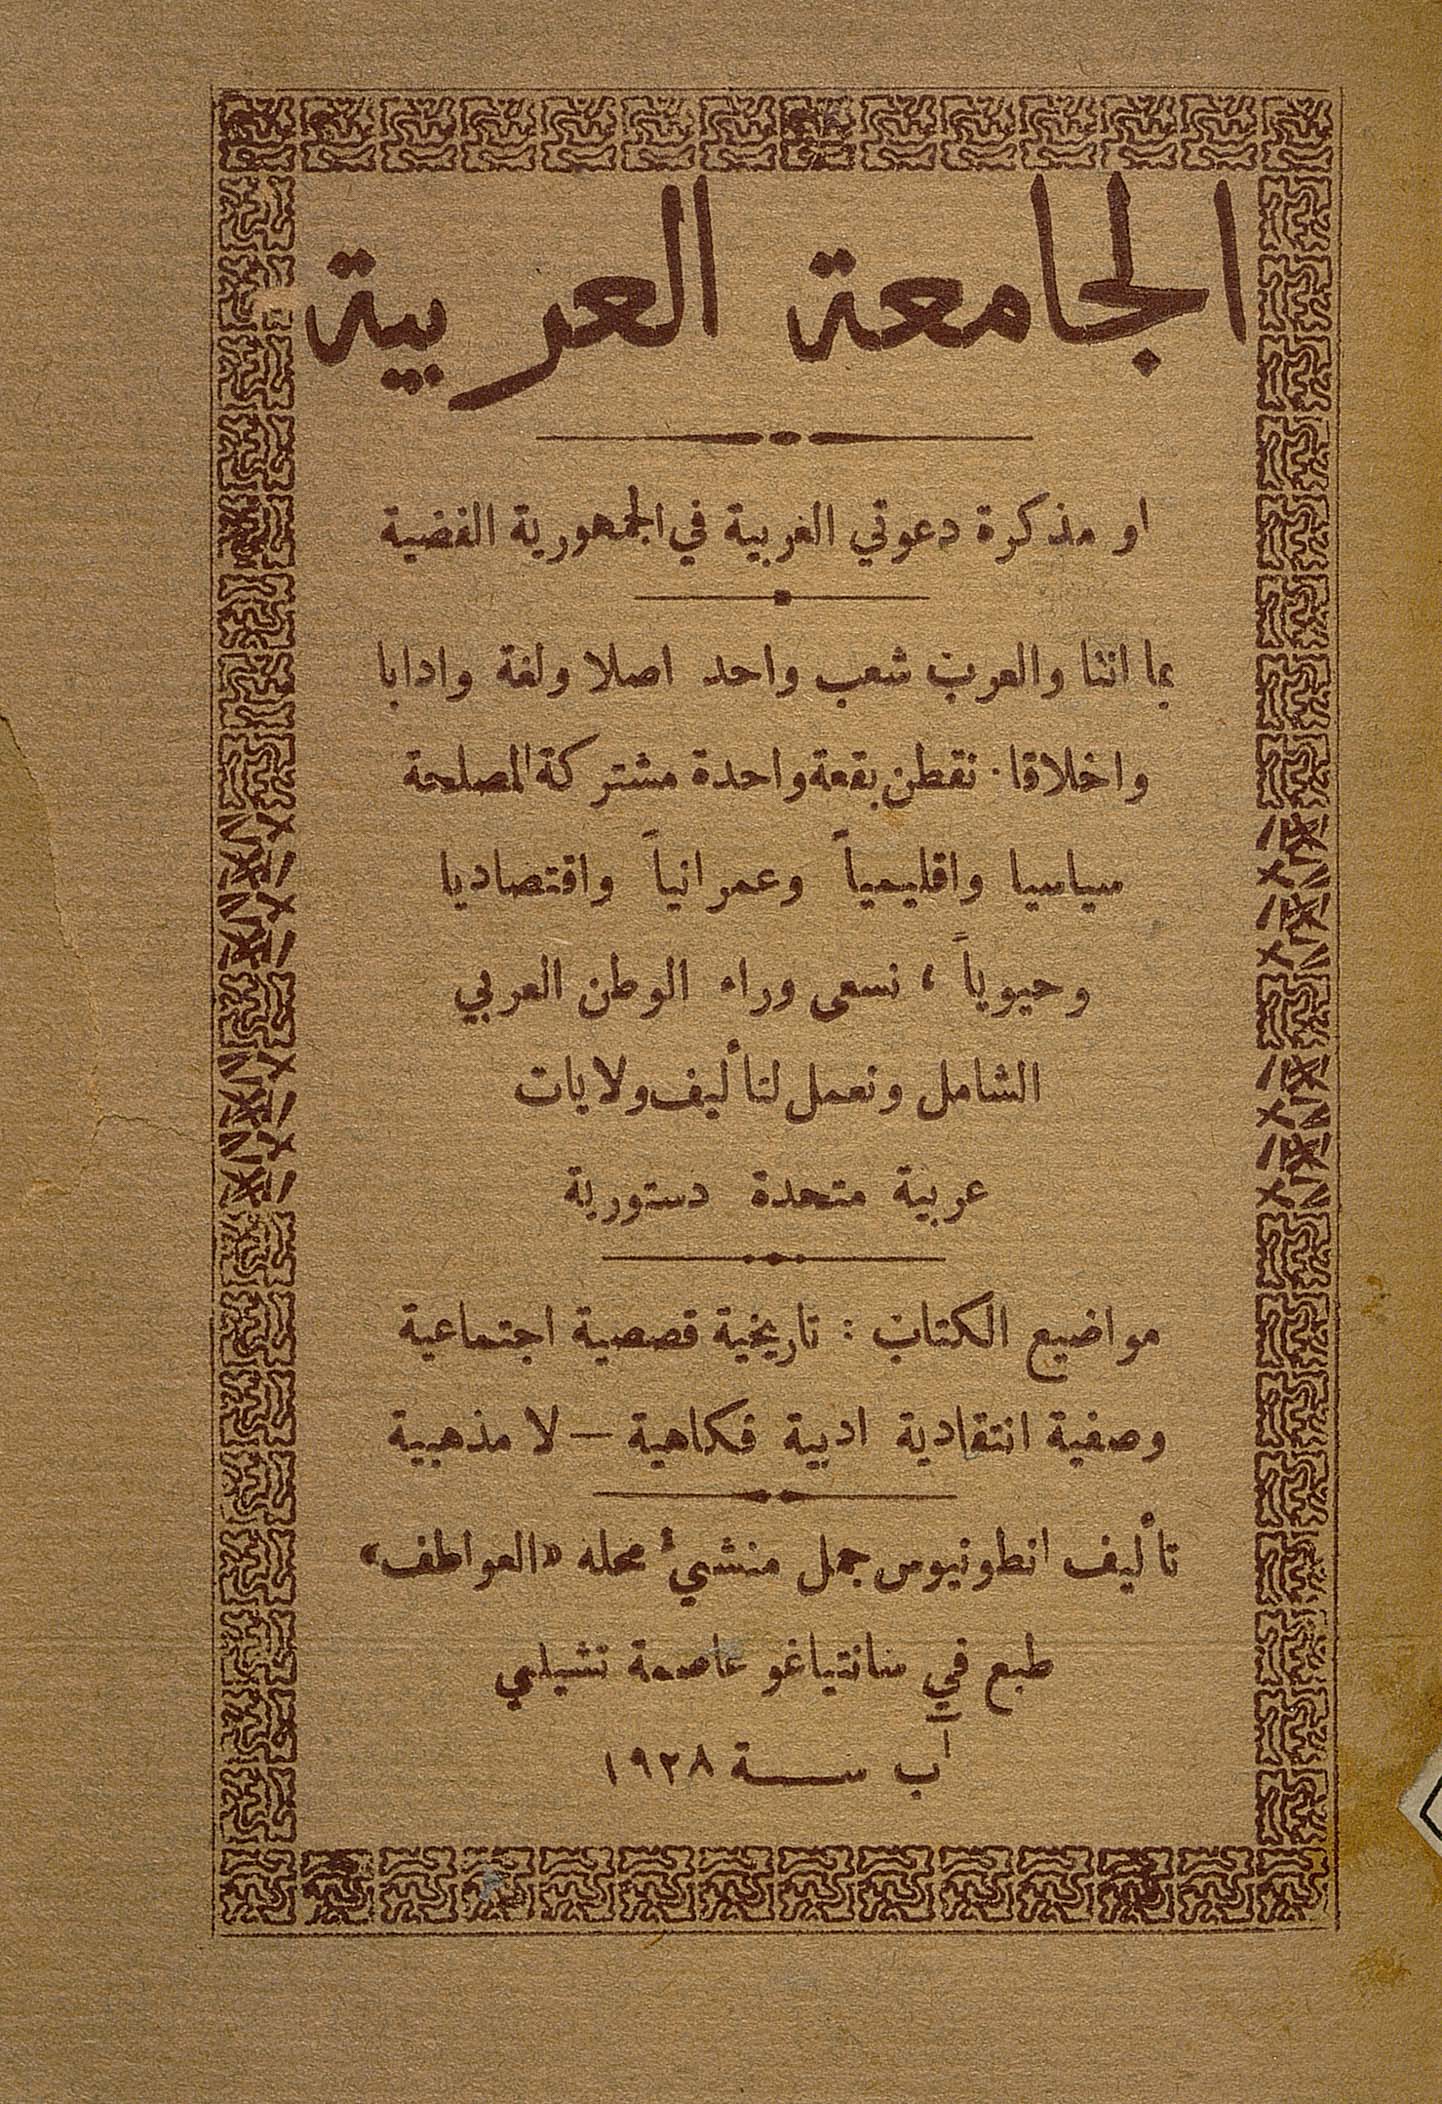 الجامعة العربية
او مذكرة دعوتي العربية في الجمهورية الفضية
بما اننا والعرب شعب واحد اصلا ولغة وادابا
واخلاقا. نقطن بقعة واحدة مشتركة المصلحة
سياسيا واقليمياً وعمرانياً واقتصاديا
وحيوياً ، نسعى وراء الوطن العربي
الشامل ونعمل لتأليف ولايات
عربية متحدة دستورية
مواضيع الكتاب : تاريخية قصصية اجتماعية
وصفية انتقادية ادبية فكاهية — لا مذهبية
تأليف انطونيوس جمل منشئ مجله «العواطف»
طبع في سانتياغو عاصمة تشيلي
آب سنة ١٩٢٨